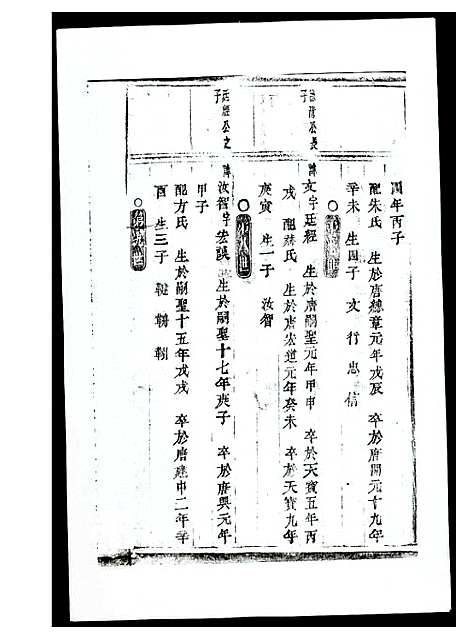 四年丙子
配朱氏 生於唐總章元年戊辰 卒於唐開元十九年
辛未 生四子 文 行 忠 信
德清公長
子
諱文字廷經 生於唐嗣聖元年甲申 卒於天寶五年丙
戌 配蘇氏 生於唐宏道元年癸未 卒於天寶九年
庚寅 生一子 汝智
廷經公之
子
諱汝智字宏謨 生於嗣聖十七年庚子 卒於唐興元年
甲子
配方氏 生於嗣聖十五年戊戌 卒於唐建中二年辛
酉 生三子